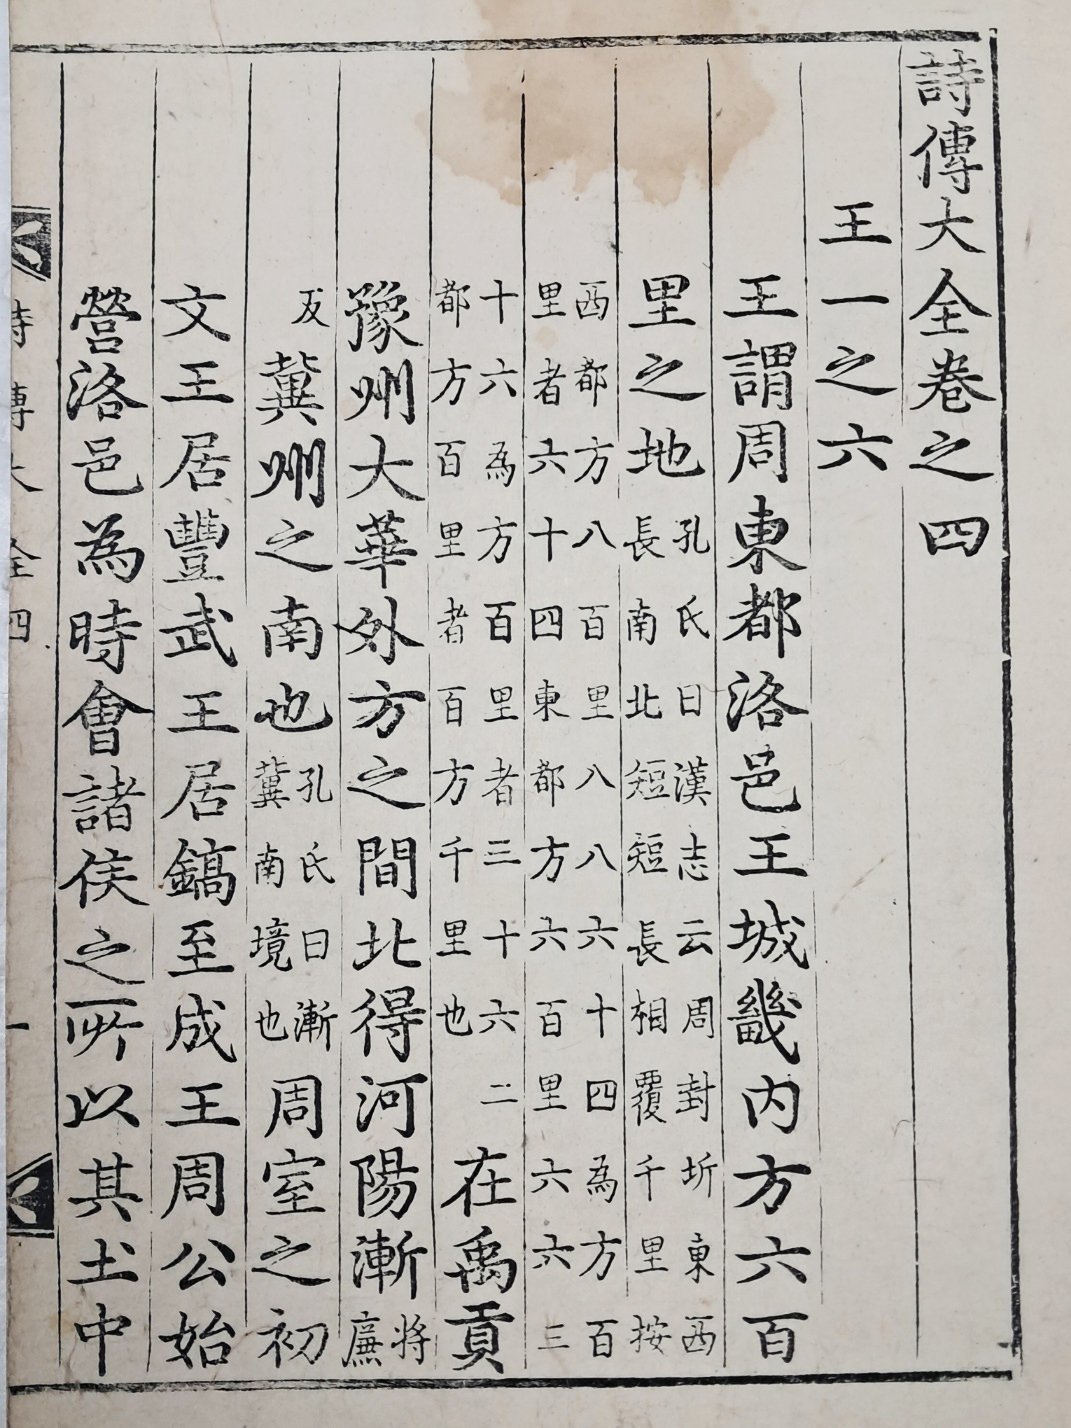 詩傳大全卷之四
王一之六
王謂周東都洛邑王城畿内方六百
里之地孔氏曰漢志云周封圻東西長南北短短長相覆千里按
西都方八百里八八六十四為方百里者六十四東都方六百里六六三
十六為方百里者三十六二都方百里者百方千里也在禹貢
豫州大華外方之間北得河陽漸將廉
反冀州之南也孔氏曰漸冀南境也周室之初
文王居豐武王居鎬至成王周公始
營洛邑為時會諸侯之所以其土中
詩傳大全四 一